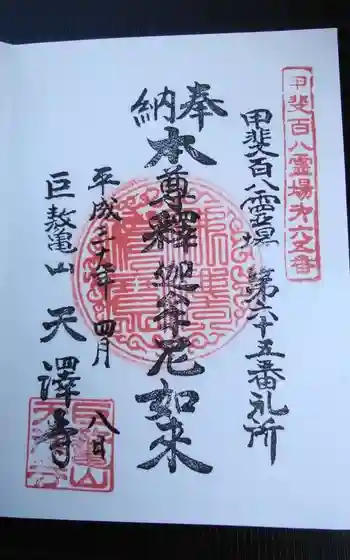 甲斐百八霊場第六五番
甲斐百八霊場 第六十五番札所
奉納
本尊釋迦牟尼如来
平成三十年 四月 八日
巨鼇山 天澤寺